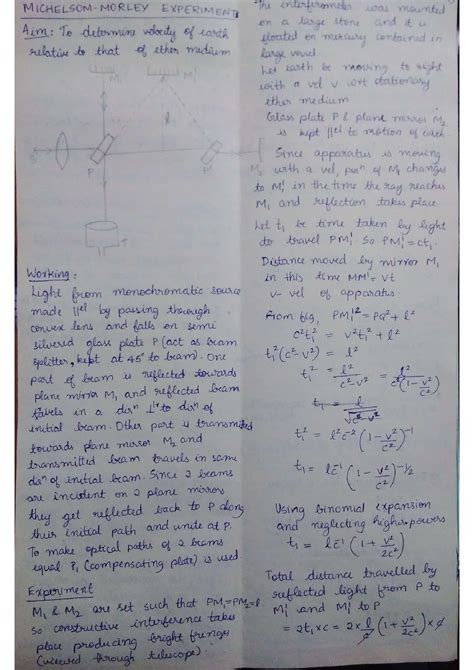 MICHELSOM-MORLEY EXPERIMENT
Aim: To determine velocity of earth
relative to that of ether medium
M1
M1'
l
S
P
P'
M2
T
Working:
Light from monochromatic source
made ||el by passing through
convex lens and falls on semi
silvered glass plate P (act as beam
splitter, kept at 45° to beam). One
part of beam is reflected towards
plane mirror M1 and reflected beam
travels in a dirn ⊥r to dirn of
initial beam. Other part is transmitted
towards plane mirror M2 and
transmitted beam travels in same
dirn of initial beam. Since 2 beams
are incident on 2 plane mirrors
they get reflected back to P along
their initial path and unite at P.
To make optical paths of 2 beams
equal P1 (compensating plate) is used
Experiment
M1 & M2 are set such that PM1=PM2=l
so constructive interference takes
place producing bright fringes
(viewed through telescope).
The interferometer was mounted
on a large stone and it is
floated on mercury contained in
large vessel
Let earth be moving to right
with a vel v wrt stationary
ether medium
Glass plate P & plane mirror M2
is kept ||el to motion of earth.
Since apparatus is moving
with a vel, posn of M1 changes
to M1' in the time the ray reaches
M1 and reflection takes place
Let t1 be time taken by light
to travel PM1' so PM1' = ct1
Distance moved by mirror M1
in this time MM' = vt
v- vel of apparatus
From fig, PM1'² = PQ² + l²
c²t1² = v²t1² + l²
t1²(c²-v²) = l²
t1² = l²/(c²-v²) = l²/c²(1-v²/c²)
t1 = l/√(c²-v²)
t1² = l²c⁻²(1-v²/c²)⁻¹
t1 = lc⁻¹(1-v²/c²)⁻¹/²
Using binomial expansion
and neglecting higher powers
t1 = lc⁻¹(1+v²/2c²)
Total distance travelled by
reflected light from P to
M1' and M1' to P
= 2t1×c = 2×l/c(1+v²/2c²)×c